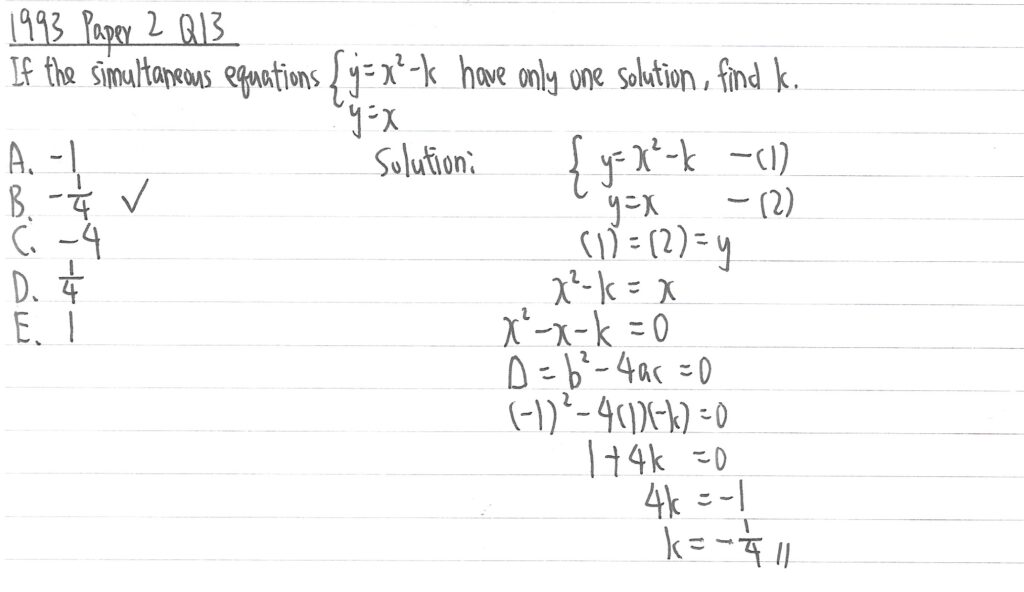 1993 Paper 2 Q13
If the simultaneous equations { y = x² - k have only one solution, find k.
y = x
A. -1
B. -1/4 ✓
C. -4
D. 1/4
E. 1
Solution:
{ y = x² - k — (1)
y = x — (2)
(1) = (2) = y
x² - k = x
x² - x - k = 0
D = b² - 4ac = 0
(-1)² - 4(1)(-k) = 0
1 + 4k = 0
4k = -1
k = -1/4 //